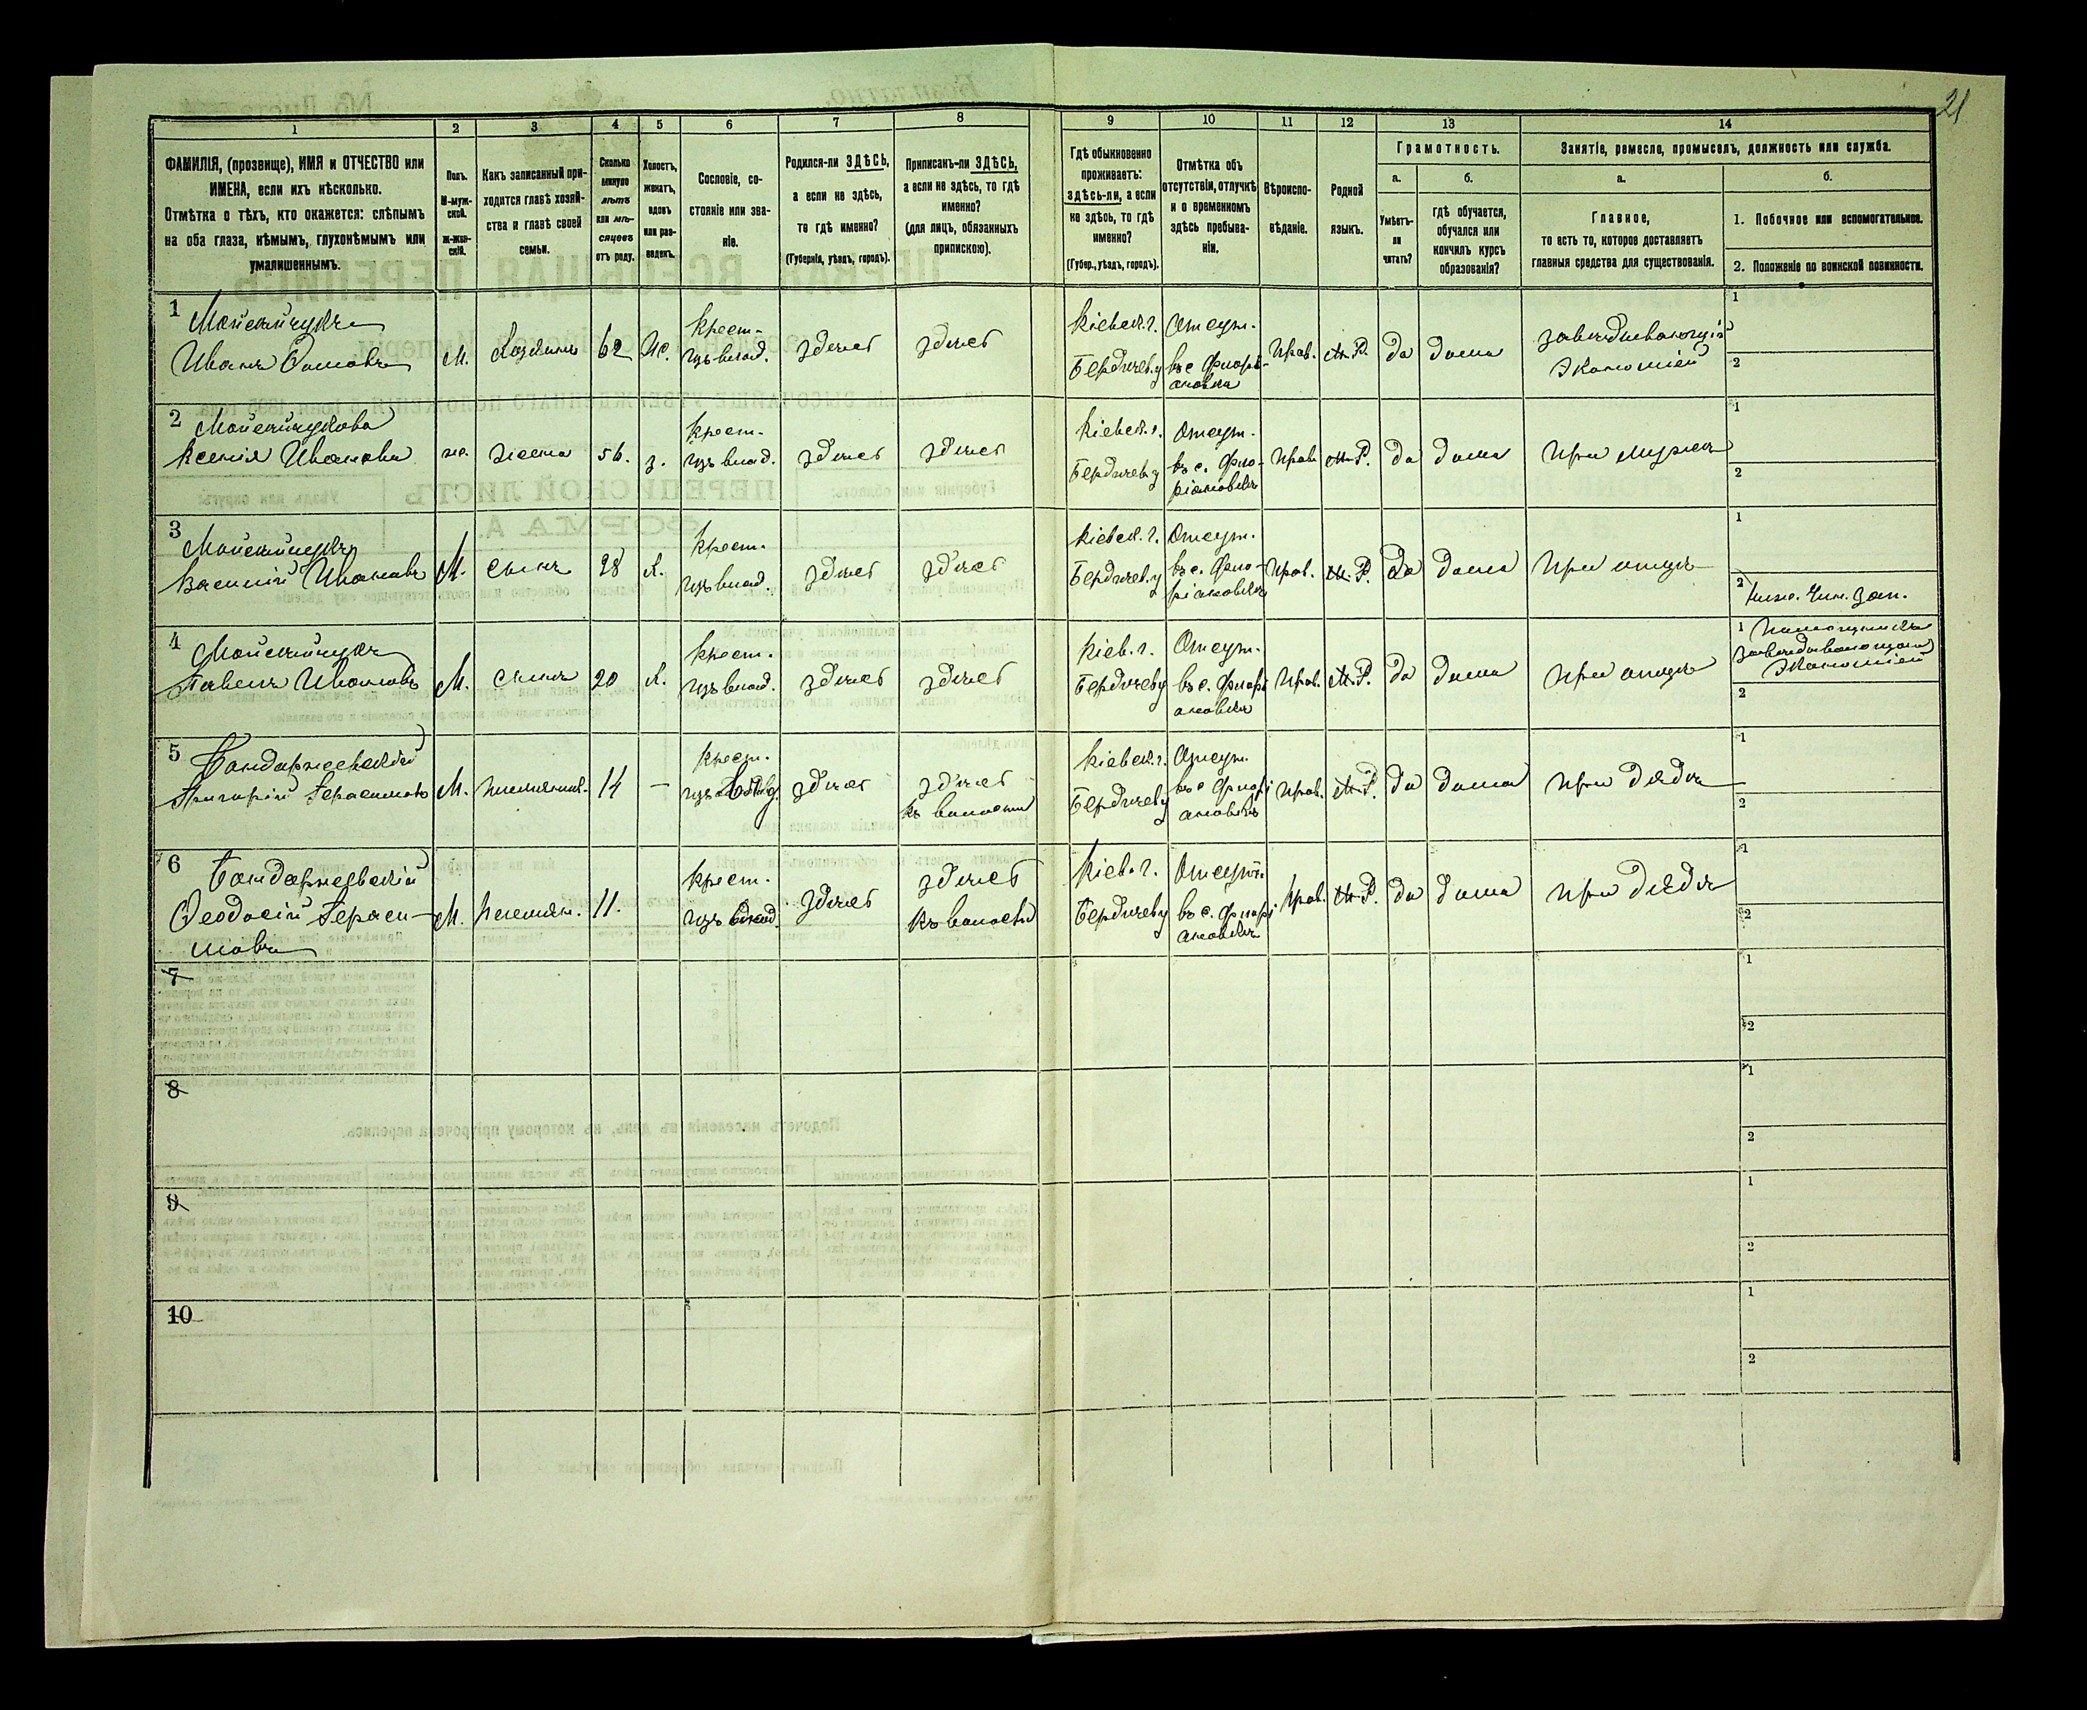 21
1 2 3 4 5 6 7 8 9 10 11 12 13 14
ФАМИЛІЯ, (прозвище), ИМЯ и ОТЧЕСТВО или
ИМЕНА, если ихъ нѣсколько.
Отмѣтка о тѣхъ, кто окажется: слѣпымъ
на оба глаза, нѣмымъ, глухонѣмымъ или
умалишеннымъ.
Полъ.
М-муж-
ской.
ж-жен-
скій.
Какъ записанный при-
ходится главѣ хозяй-
ства и главѣ своей
семьи.
Сколько
минуло
лѣтъ
или мѣ-
сяцевъ
отъ роду.
Холостъ,
женатъ,
вдовъ
или раз-
веденъ.
Сословіе, со-
стояніе или зва-
ніе.
Родился-ли ЗДѢСЬ,
а если не здѣсь,
то гдѣ именно?
(Губернія, уѣздъ, городъ).
Приписанъ-ли ЗДѢСЬ,
а если не здѣсь, то гдѣ
именно?
(для лицъ, обязанныхъ
припискою).
Гдѣ обыкновенно
проживаетъ:
здѣсь-ли, а если
не здѣсь, то гдѣ
именно?
(Губер., уѣздъ, городъ).
Отмѣтка объ
отсутствіи, отлучкѣ
и о временномъ
здѣсь пребыва-
ніи.
Вѣроиспо-
вѣданіе.
Родной
языкъ.
Грамотность.
а.
Умѣетъ-
ли
читать?
б.
гдѣ обучается,
обучался или
кончилъ курсъ
образованія?
Занятіе, ремесло, промыселъ, должность или служба.
а.
Главное,
то есть то, которое доставляетъ
главныя средства для существованія.
б.
1. Побочное или вспомогательное.
2. Положеніе по воинской повинности.
1
Иванъ Фомовъ
М.
Хозяинъ
62
Крест.
изъ влад.
здѣсь
здѣсь
Кіевск. г.
Бердичев. у
Отсут.
въ с. Флорі-
ановка
Прав.
М. Р.
да
дома
завѣдывающій
Экономіей
1
2
2
Ксенія Иванова
жена
56.
з.
Крест.
изъ влад.
здѣсь
здѣсь
Кіевск. г.
Бердичев. у
Отсут.
въ с. Фло-
ріановкѣ
Прав.
М. Р.
да
дома
При мужѣ
1
2
3
Василій Ивановъ
М.
сынъ
28
х.
Крест.
изъ влад.
здѣсь
здѣсь
Кіевск. г.
Бердичев. у
Отсут.
въ с. Фло-
ріановкѣ
Прав.
М. Р.
да
дома
При отцѣ
1
2 Ниж. Чин. зап.
4
Павелъ Ивановъ
М.
сынъ
20
х.
Крест.
изъ влад.
здѣсь
здѣсь
Кіев. г.
Бердичев у
Отсут.
въ с. Флорі
ановкѣ
Прав.
М. Р.
да
дома
При отцѣ
1 Помощникъ
завѣдывающаго
Экономіей
2
5
Григорій Герасимовъ
М.
племянник.
14
—
Крест.
изъ
здѣсь
здѣсь
къ волости
Кіевск. г.
Бердичев у
Отсут.
въ с Флорі
ановкѣ
Прав.
М. Р.
да
дома
При дядѣ
1
2
6
Феодосій Гераси-
мовъ
М.
племян.
11.
Крест.
изъ
здѣсь
здѣсь
къ волости
Кіев. г.
Бердичев у
Отсут.
въ с. Флорі
ановкѣ
Прав.
М. Р.
да
дома
При дядѣ
1
2
7
1
2
8
1
2
9
1
2
10
1
2